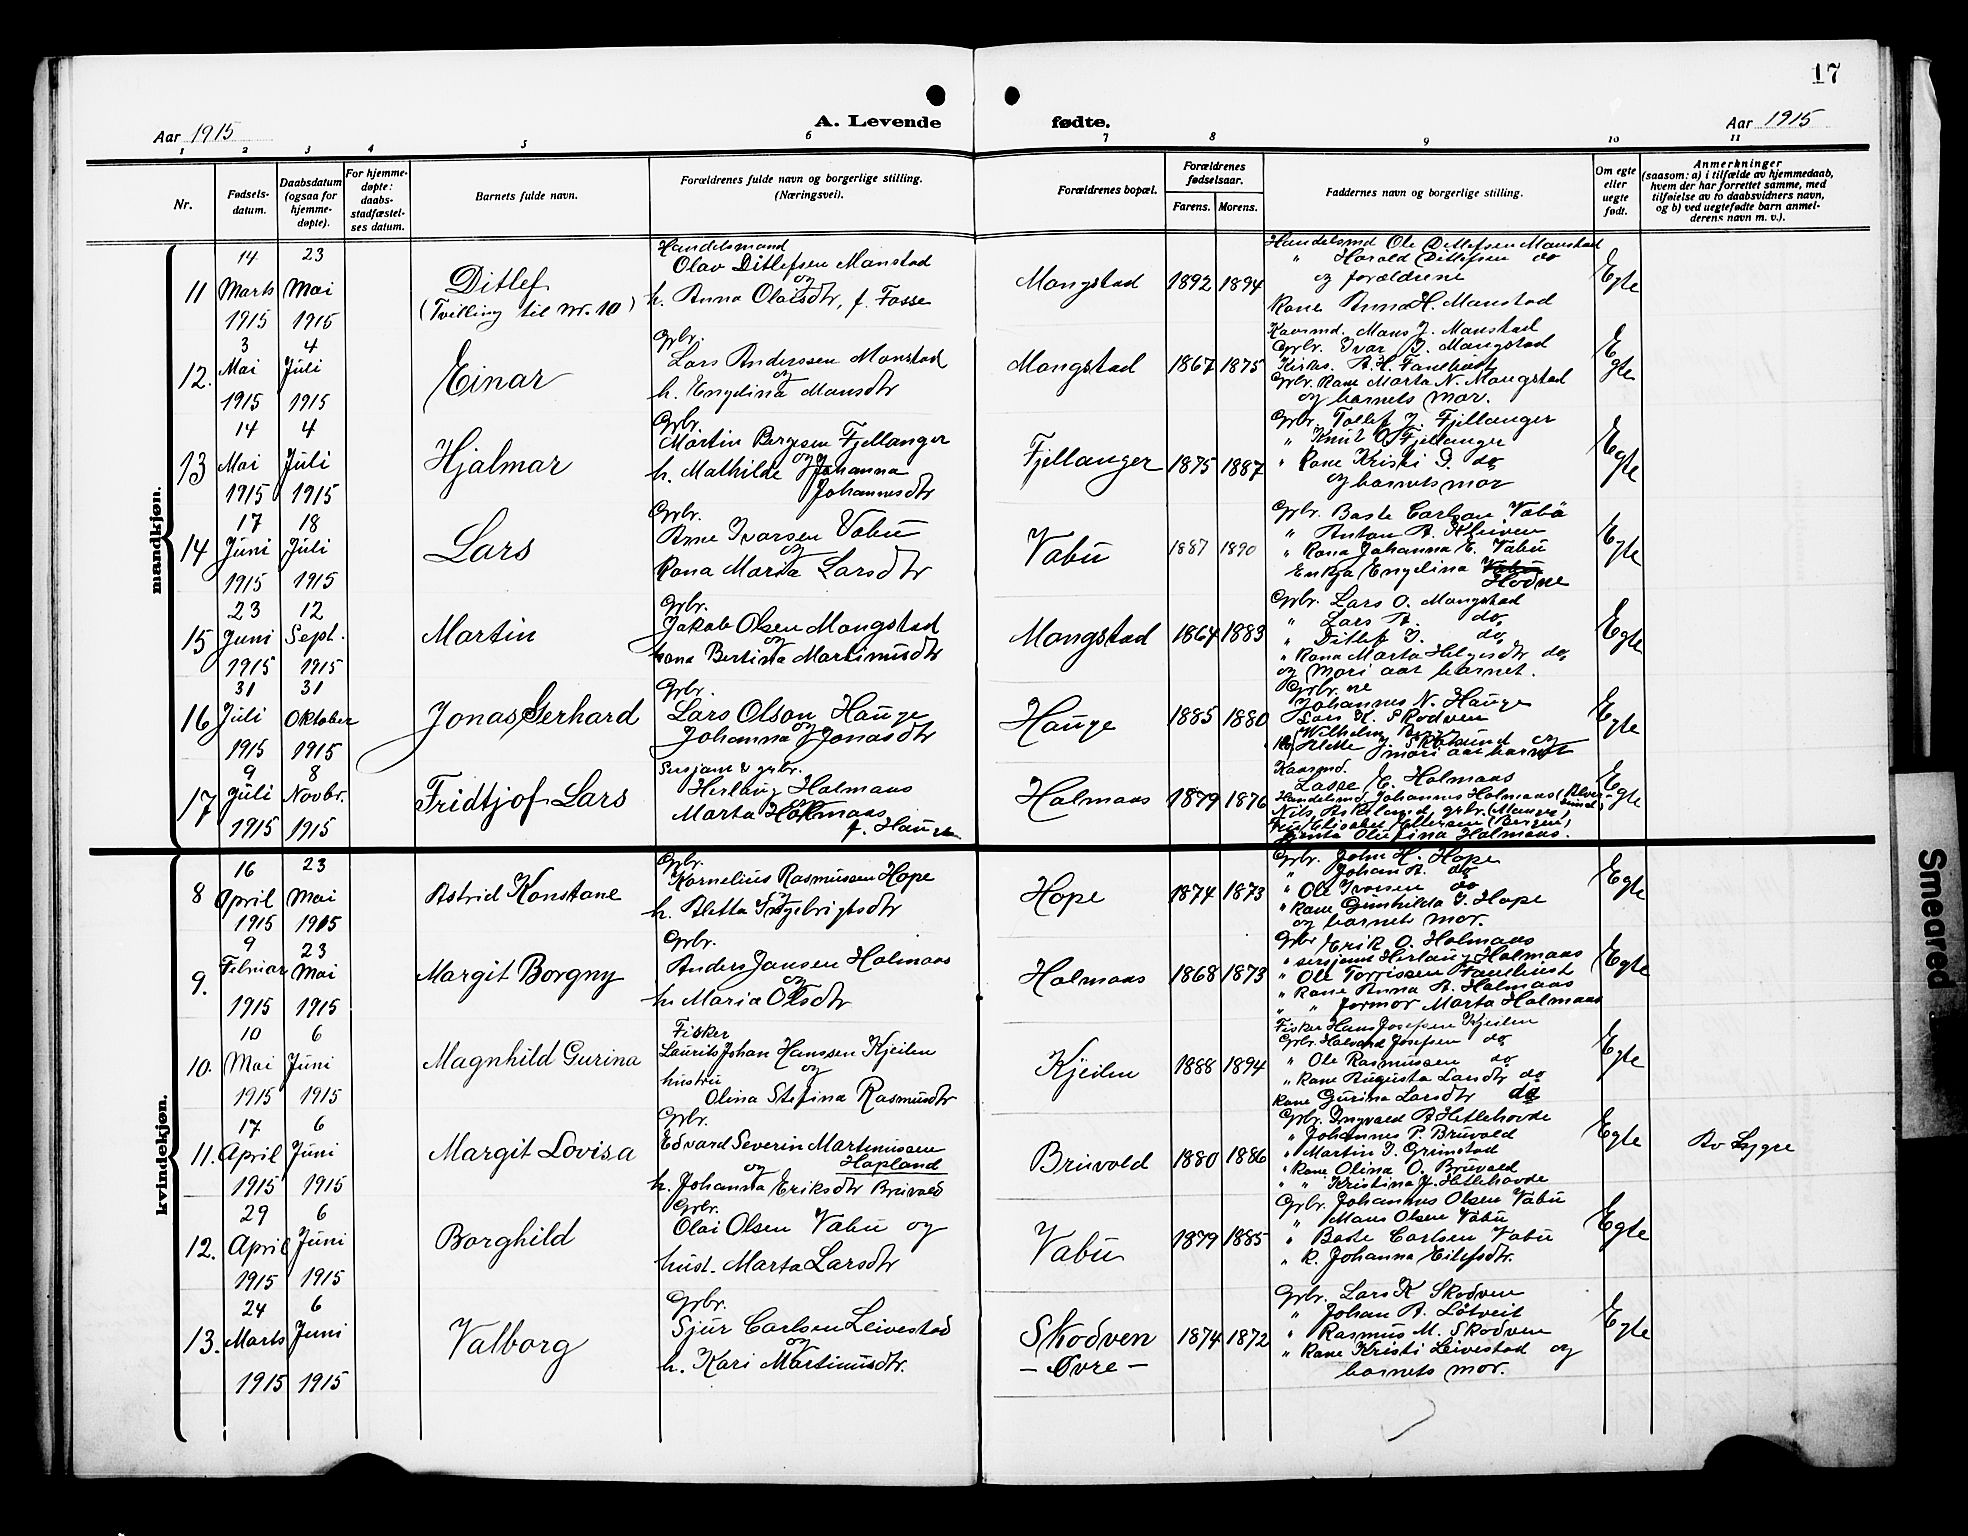 17
Aar 1915
A. Levende fødte.
Aar 1915
1 2 3 4 5 6 7 8 9 10 11
Nr.
Fødsels-
datum.
Daabsdatum
(ogsaa for
hjemme-
døpte).
For hjemme-
døpte:
daabs-
stadfæstel-
ses datum.
Barnets fulde navn.
Forældrenes fulde navn og borgerlige stilling.
(Næringsvei).
Forældrenes bopæl.
Forældrenes
fødselsaar.
Farens. Morens.
Faddernes navn og borgerlige stilling.
Om egte
eller
uegte
født.
Anmerkninger
(saasom: a) i tilfælde av hjemmedaab,
hvem der har forrettet samme, med
tilføielse av to daabsvidners navn,
og b) ved uegtefødte barn anmel-
derens navn m. v.).
mandkjøn.
11
14
Marts
1915
23
Mai
1915
Ditlef
(Tvilling til nr. 10)
Handelsmand
Olav Ditlefsen Manstad
og
h. Anna Olaisdtr, f. Fosse
Mongstad
1892 1894
Handelsmd Ole Ditlefsen Manstad
" Harald Ditlefsen do
og forældrene
Kone Anna H. Manstad
Egte
12.
3
Mai
1915
4
Juli
1915
Einar
Grbr.
Lars Anderssen Monstad
og
h. Engelina Mansdtr
Mongstad
1867 1875
Kaarmd. Mons J. Manstad
Grbr. Ivar J. Mangstad
Kirks. A. H. Fanebust
Grbr. Kone Marta N. Mangstad
og barnets mor.
Egte
13
14
Mai
1915
4
Juli
1915
Hjalmar
Grbr.
Martin Bergesen Fjellanger
og
h. Mathilde Johanna
Johannesdtr
Fjellanger
1875 1887
Grbr. Tollef J. Fjellanger
" Knut O. Fjellanger
" Kone Kristi do
og barnets mor
Egte
14
17
Juni
1915
18
Juli
1915
Lars
Grbr.
Arne Ivarsen Vabü
og
Kona Maria Larsdtr
Vabü
1887 1890
Grbr. Baste Carlson Vabö
" Anton A.
" Kona Johanna E. Vabü
Enkja Engelina
Hodne
Egte
15
23
Juni
1915
12
Sept.
1915
Martin
Grbr.
Jakob Olsen Mongstad
og
kona Bertina Martinusdtr
Mongstad
1864 1883
Grbr. Lars O. Mangstad
" Lars A. do
" Ditlef J. do
" Kona Marta Helgesdtr do
og mori aat barnet.
Egte
16
31
Juli
1915
31
Oktober
1915
Jonas Gerhard
Grbr.
Lars Olson Hauge
og
Johanna Jonasdtr
Hauge
1885 1880
Grbr. ne
Johannes N. Hauge
Lars K. Skodven
Wilhelm
og
mori aat barnet
Egte
17
9
Juli
1915
8
Novbr.
1915
Fridtjof Lars
Sersjant & grbr.
Herlaug Holmaas
og
Marta Holmaas
f. Hauge
Holmaas
1879 1876
Kaarmd.
Lasse E. Holmaas
Handelsmd. Johannes Holmaas (Alver-
sund),
Nils Askeland, grbr. (Manger)
Frü Elisabet Ellersen (Bergen)
Jenta Olufina Holmaas.
Egte
kvindekjøn.
8
16
April
1915
23
Mai
1915
Astrid Konstane
Grbr.
Kornelius Rasmussen Hope
og
h. Aletta Ingebrigtsdtr
Hope
1874 1873
Grbr. John H. Hope
" Johan A. do
" Ole Ivarsen do
" Kone Gunhilda I. Hope
og barnets mor.
Egte
9.
9
Februar
1915
23
Mai
1915
Margit Borgny
Grbr.
Anders Jansen Holmaas
og
h. Maria Olsdtr
Holmaas
1868 1873
Grbr Erik O. Holmaas
" sersjant Herlaug Holmaas
" Ole Torrissen Fanebust
" Kone Anna A. Holmaas
" " formor Marta Holmaas
Egte
10.
10
Mai
1915
6
Juni
1915
Magnhild Gurina
Fisker
Laurits Johan Hanssen Kjeilen
og
hustru
Olina Stefina Rasmusdtr
Kjeilen
1888 1894
Fisker Hans Josefsen Kjeilen
Grbr. Halvard Josefsen do
" Ole Rasmussen do
" Kone Augusta Larsdtr do
Kone Gurina Larsdtr do
Egte
11.
17
April
1915
6
Juni
1915
Margit Lovisa
Grbr.
Edvard Severin Martinussen
Hopland
og
h. Johanna Eriksdtr Bruvold
Bruvold
1880 1886
Grbr. Ingvald A Hetlehovde
" Johannes P. Bruvold
" Martin I. Grimstad
" Kone Olina O. Bruvold
" " Kristina J. Hetlehovde
Egte
Av Lygre
12.
29
April
1915
6
Juni
1915
Borghild
Grbr.
Olai Olsen Vabü og
hust. Marta Larsdtr
Vabü
1879 1885
Grbr. Johannes Olsen Vabü
" Mans Olsen Vabü
" Baste Carlsen Vabü
" K. Johanna Eilefsdtr.
Egte
13.
24
Marts
1915
6
Juni
1915
Valborg
Grbr.
Sjur Carlsen Leivestad
og
h. Kari Martinusdtr.
Skodven
– Øvre –
1874 1872
Grbr. Lars K Skodven
" Johan A. Lötveit
" Rasmus M. Skodven
" Kone Kristi Leivestad og
barnets mor.
Egte
Smeared